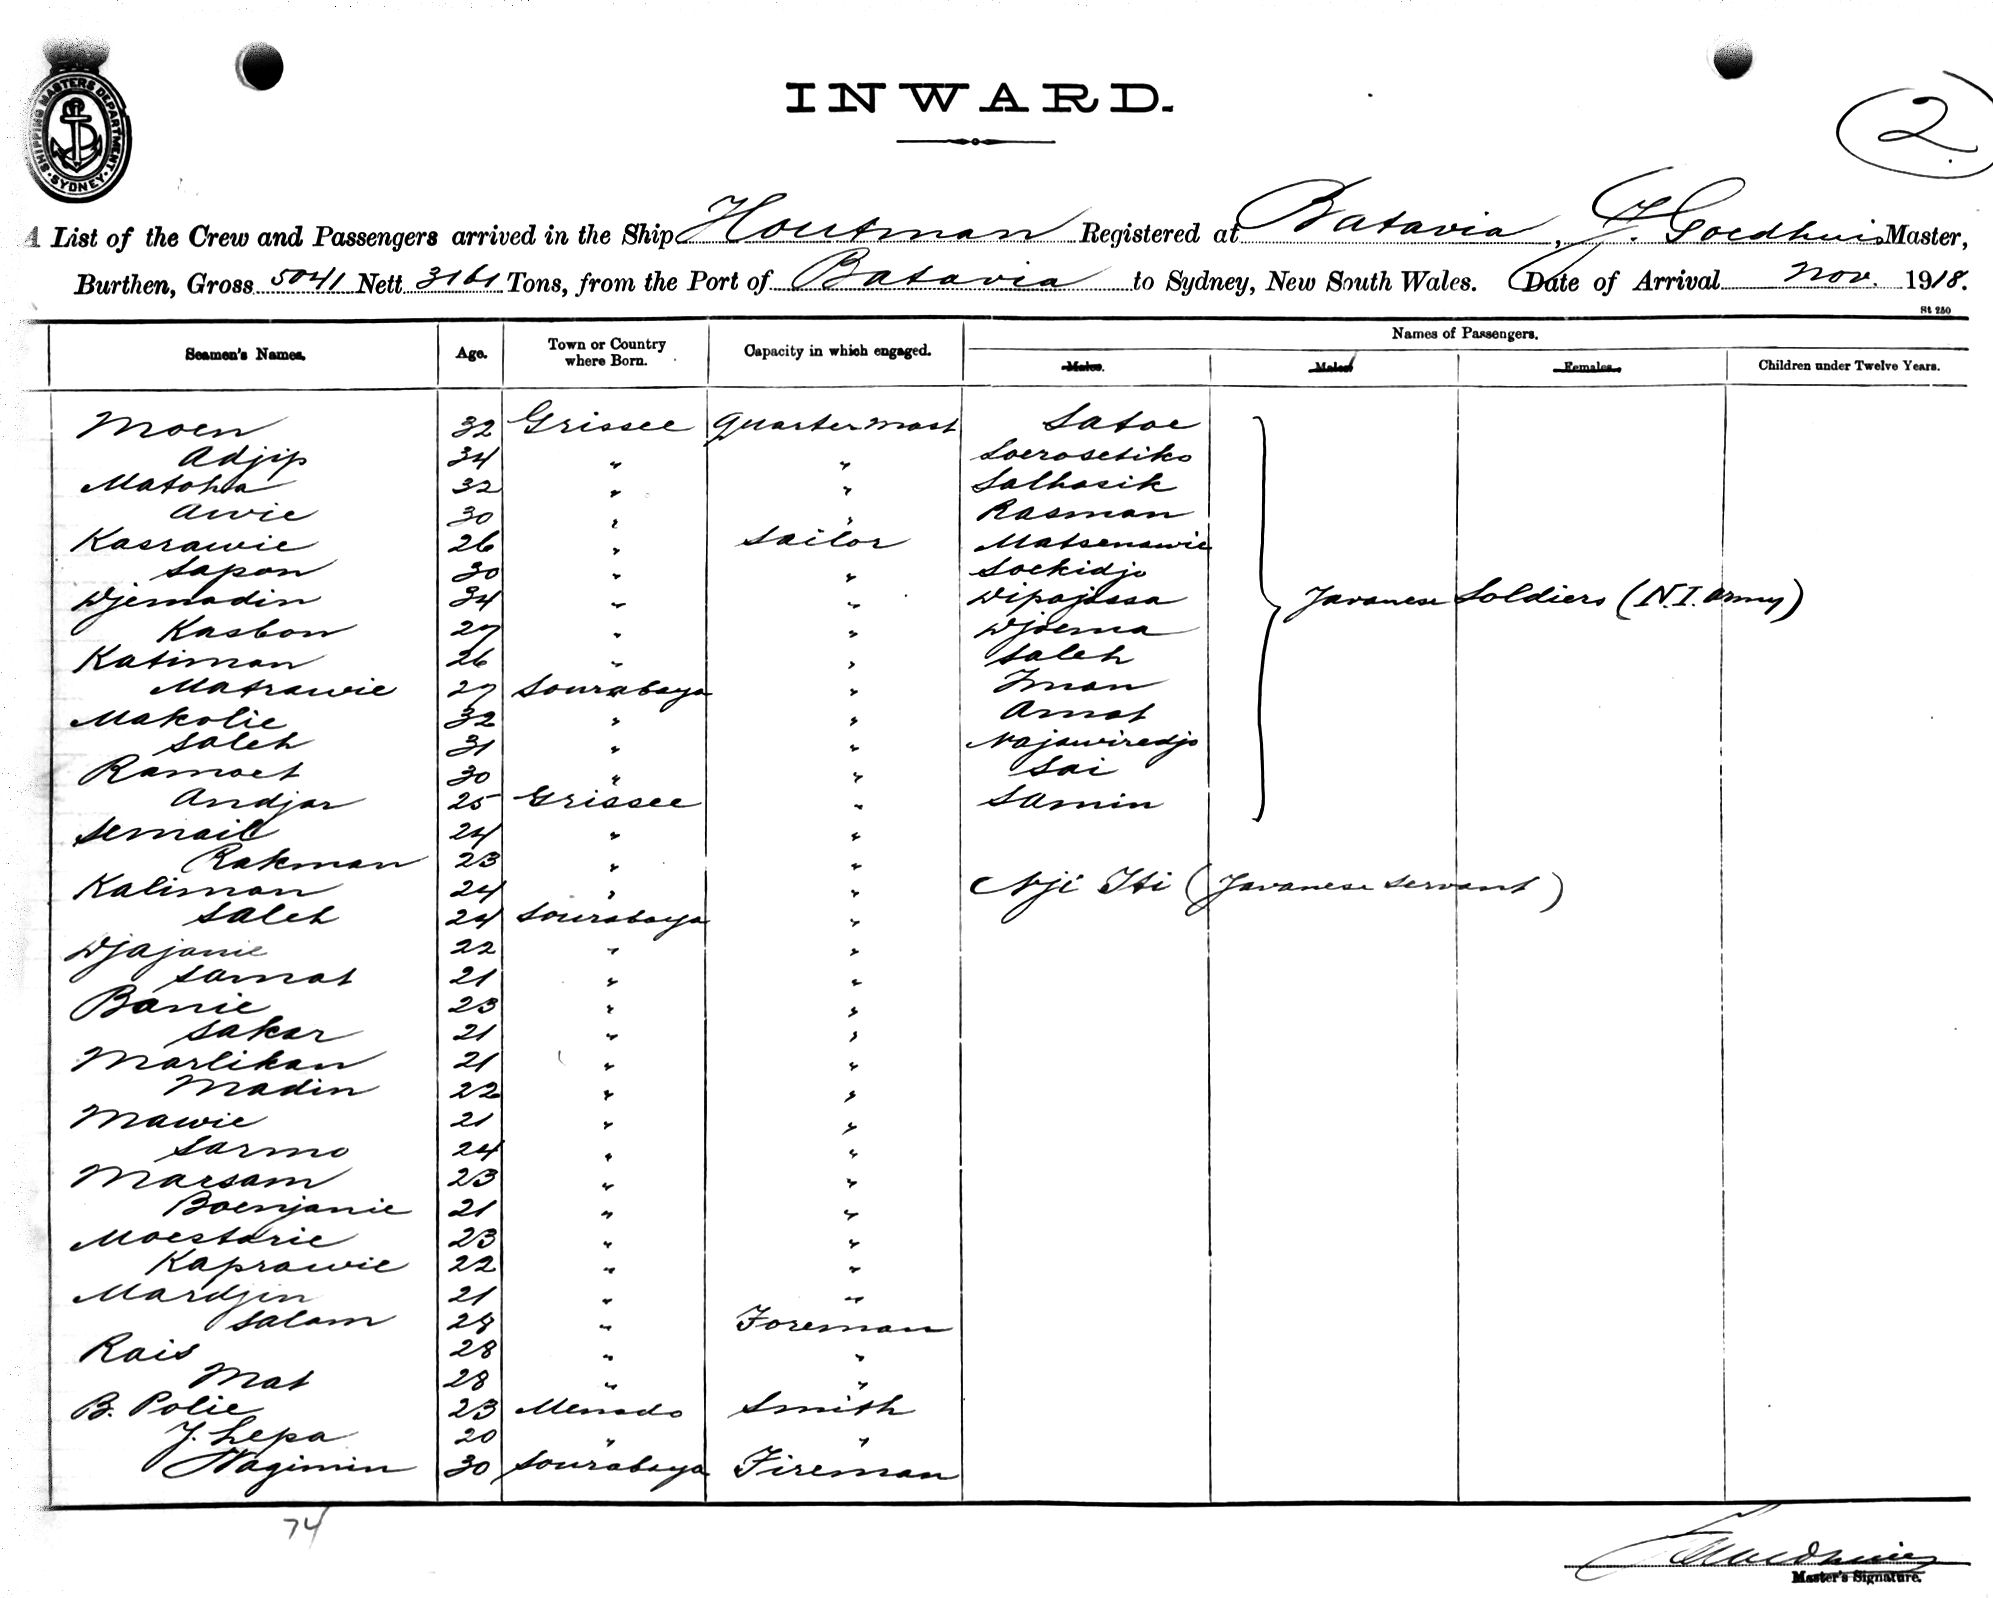 SHIPPING MASTERS DEPARTMENT
SYDNEY
INWARD.
2
A List of the Crew and Passengers arrived in the Ship Houtman Registered at Batavia, J. Goedhuis Master,
Burthen, Gross 5041 Nett 3161 Tons, from the Port of Batavia to Sydney, New South Wales. Date of Arrival Nov. 1918.
St 250
Seamen's Names. Age. Town or Country where Born. Capacity in which engaged. Names of Passengers.
Males. Males Females. Children under Twelve Years.
Moen 32 Grissee Quartermast Satoe
Adjip 34 " " Soerosetiko
Matoha 32 " " Salhasik
Awie 30 " " Rasman
Kasrawie 26 " Sailor Matsenawie
Sapon 30 " " Soekidjo
Djemadin 34 " " Dipojossa Javanese Soldiers (N.I. Army)
Kasbon 27 " " Djoema
Katiman 26 " " Saleh
Matrawie 27 Sourabaya " Iman
Makolie 32 " " Amat
Saleh 31 " " Najawiredjo
Ramoet 30 " " Sai
Andjar 25 Grissee " Samin
Semail 24 " "
Rakman 23 " "
Kaliman 24 " " Nji Iti (Javanese servant)
Saleh 24 Sourabaya "
Djajanie 22 " "
Samat 21 " "
Banie 23 " "
Sakar 21 " "
Marlikan 21 " "
Madin 22 " "
Mawie 21 " "
Sarmo 24 " "
Marsam 23 " "
Boenjanie 21 " "
Moestarie 23 " "
Kaprawie 22 " "
Mardjin 21 " "
Salam 28 " Foreman
Rais 28 " "
Mat 28 " "
B. Polie 23 Menado Smith
J. Lepa 20 " "
Wagimin 30 Sourabaya Fireman
74
J. Goedhuis
Master's Signature.